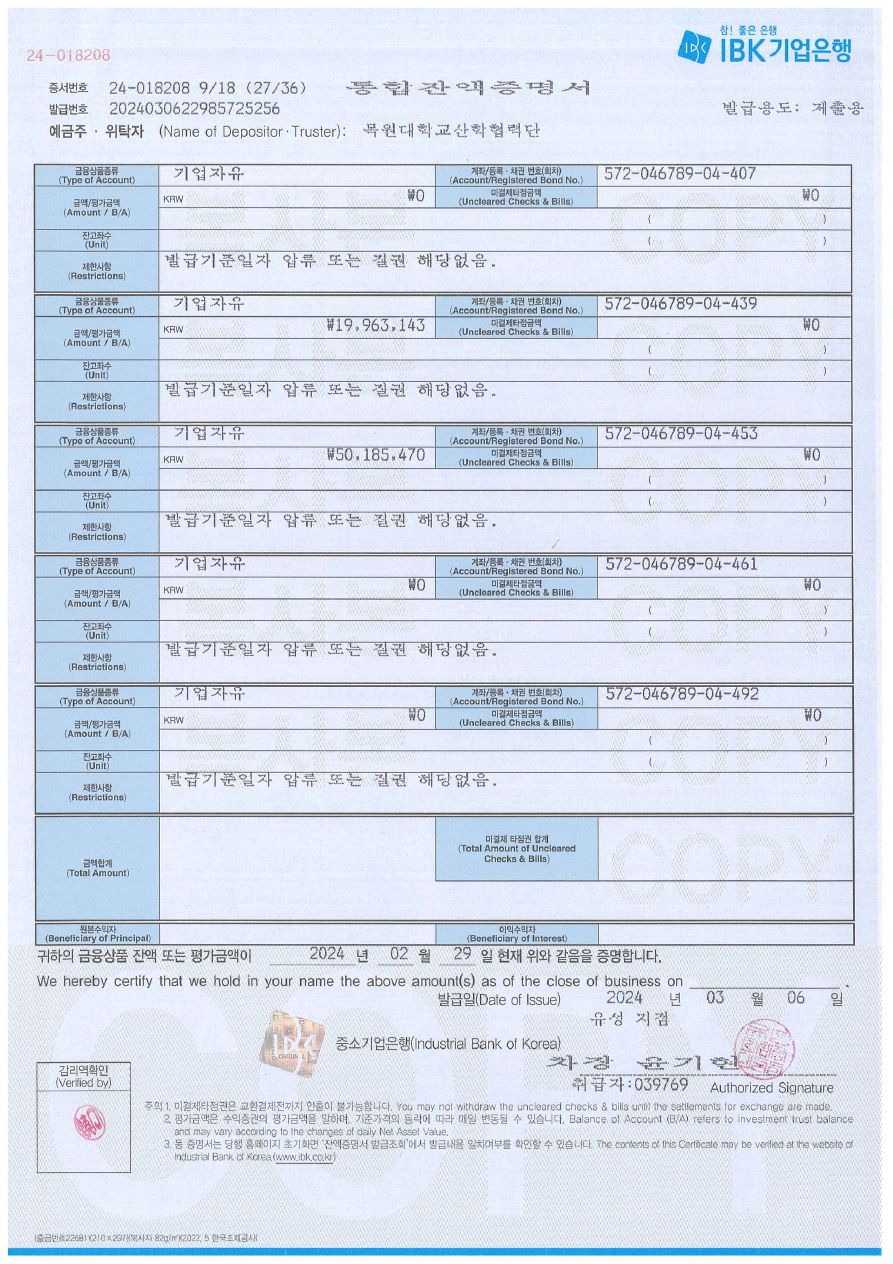 24-018208
참! 좋은 은행
IBK 기업은행
증서번호 24-018208 9/18 (27/36) 통합잔액증명서
발급번호 2024030622985725256 발급용도: 제출용
예금주 · 위탁자 (Name of Depositor · Truster): 목원대학교산학협력단
금융상품종류 (Type of Account) 기업자유 계좌/등록 · 채권 번호(회차) (Account/Registered Bond No.) 572-046789-04-407
금액/평가금액 (Amount / B/A) KRW ₩0 미결제타점금액 (Uncleared Checks & Bills) ₩0
( )
잔고좌수 (Unit) ( )
제한사항 (Restrictions) 발급기준일자 압류 또는 질권 해당없음.
금융상품종류 (Type of Account) 기업자유 계좌/등록 · 채권 번호(회차) (Account/Registered Bond No.) 572-046789-04-439
금액/평가금액 (Amount / B/A) KRW ₩19,963,143 미결제타점금액 (Uncleared Checks & Bills) ₩0
( )
잔고좌수 (Unit) ( )
제한사항 (Restrictions) 발급기준일자 압류 또는 질권 해당없음.
금융상품종류 (Type of Account) 기업자유 계좌/등록 · 채권 번호(회차) (Account/Registered Bond No.) 572-046789-04-453
금액/평가금액 (Amount / B/A) KRW ₩50,185,470 미결제타점금액 (Uncleared Checks & Bills) ₩0
( )
잔고좌수 (Unit) ( )
제한사항 (Restrictions) 발급기준일자 압류 또는 질권 해당없음.
금융상품종류 (Type of Account) 기업자유 계좌/등록 · 채권 번호(회차) (Account/Registered Bond No.) 572-046789-04-461
금액/평가금액 (Amount / B/A) KRW ₩0 미결제타점금액 (Uncleared Checks & Bills) ₩0
( )
잔고좌수 (Unit) ( )
제한사항 (Restrictions) 발급기준일자 압류 또는 질권 해당없음.
금융상품종류 (Type of Account) 기업자유 계좌/등록 · 채권 번호(회차) (Account/Registered Bond No.) 572-046789-04-492
금액/평가금액 (Amount / B/A) KRW ₩0 미결제타점금액 (Uncleared Checks & Bills) ₩0
( )
잔고좌수 (Unit) ( )
제한사항 (Restrictions) 발급기준일자 압류 또는 질권 해당없음.
금액합계 (Total Amount) 미결제 타점권 합계 (Total Amount of Uncleared Checks & Bills) COPY
원본수익자 (Beneficiary of Principal) 이익수익자 (Beneficiary of Interest)
귀하의 금융상품 잔액 또는 평가금액이 2024 년 02 월 29 일 현재 위와 같음을 증명합니다.
We hereby certify that we hold in your name the above amount(s) as of the close of business on .
발급일(Date of Issue) 2024 년 03 월 06 일
유성 지점
중소기업은행(Industrial Bank of Korea)
차장 윤기현
취급자:039769 Authorized Signature
감리역확인
(Verified by)
주의 1. 미결제타점권은 교환결제전까지 인출이 불가능합니다. You may not withdraw the uncleared checks & bills until the settlements for exchange are made.
2. 평가금액은 수익증권의 평가금액을 말하며, 기준가격의 등락에 따라 매일 변동될 수 있습니다. Balance of Account (B/A) refers to investment trust balance
and may vary according to the changes of daily Net Asset Value.
3. 동 증명서는 당행 홈페이지 초기화면 '잔액증명서 발급조회'에서 발급내용 일치여부를 확인할 수 있습니다. The contents of this Certificate may be verified at the website of
Industrial Bank of Korea.(www.ibk.co.kr)
(출금번호22681)(210×297)(복사지 82g/㎡)(2022. 5 한국조폐공사)